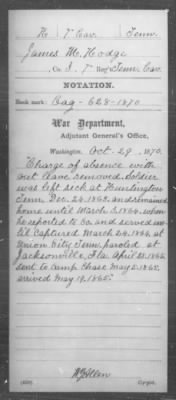 H 7 Cav. Tenn.
James M. Hodge
Co. I, 7 Reg't Tenn. Cav.
NOTATION.
Book mark: Cag-628-1870
War Department,
Adjutant General's Office,
Washington, Oct. 29, 1870.
Charge of absence with
out leave removed. Soldier
was left sick at Huntington
Tenn. Dec. 24, 1863, and remained
home until March 1864, when
he reported to Co. and served un
til captured March 24, 1864, at
Union City, Tenn. paroled at
Jacksonville, Fla. April 28, 1865
sent to Camp Chase May 2, 1865,
arrived May 19, 1865.
Copyist.